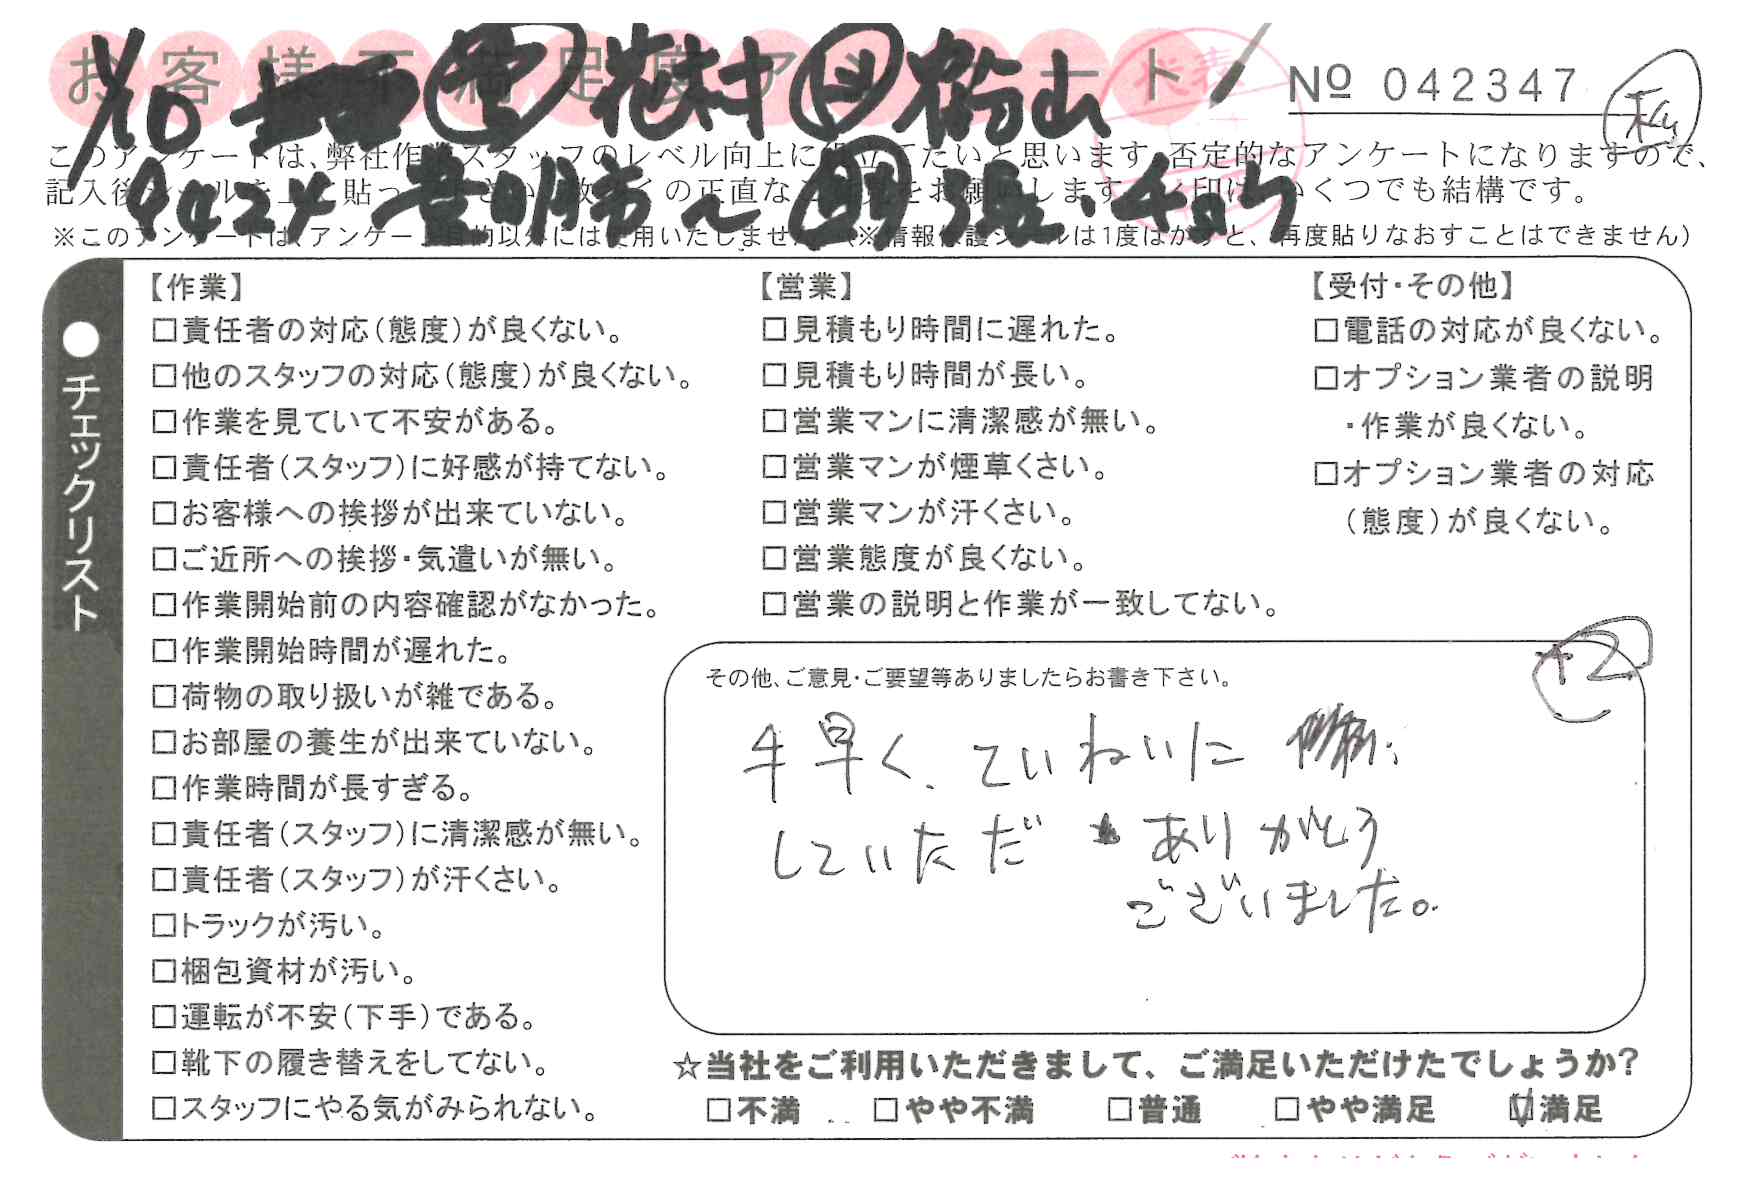 お客様不満足度アンケート
No 042347
11/10 営 花村 図
このアンケートは、弊社作業スタッフのレベル向上に役立てたいと思います。否定的なアンケートになりますので、
記入後シールを上に貼って下さい。数多くの正直なご意見をお願いします。レ印はいくつでも結構です。
9424 豊明市〜
※このアンケートは、アンケート目的以外には使用いたしません。(※情報保護シールは1度はがすと、再度貼りなおすことはできません)
●チェックリスト
【作業】
□責任者の対応(態度)が良くない。
□他のスタッフの対応(態度)が良くない。
□作業を見ていて不安がある。
□責任者(スタッフ)に好感が持てない。
□お客様への挨拶が出来ていない。
□ご近所への挨拶・気遣いが無い。
□作業開始前の内容確認がなかった。
□作業開始時間が遅れた。
□荷物の取り扱いが雑である。
□お部屋の養生が出来ていない。
□作業時間が長すぎる。
□責任者(スタッフ)に清潔感が無い。
□責任者(スタッフ)が汗くさい。
□トラックが汚い。
□梱包資材が汚い。
□運転が不安(下手)である。
□靴下の履き替えをしてない。
□スタッフにやる気がみられない。
【営業】
□見積もり時間に遅れた。
□見積もり時間が長い。
□営業マンに清潔感が無い。
□営業マンが煙草くさい。
□営業マンが汗くさい。
□営業態度が良くない。
□営業の説明と作業が一致してない。
【受付・その他】
□電話の対応が良くない。
□オプション業者の説明
・作業が良くない。
□オプション業者の対応
(態度)が良くない。
+2
その他、ご意見・ご要望等ありましたらお書き下さい。
手早く、ていねいに
していただ ありがとう
ございました。
☆当社をご利用いただきまして、ご満足いただけたでしょうか?
□不満 □やや不満 □普通 □やや満足 ☑満足